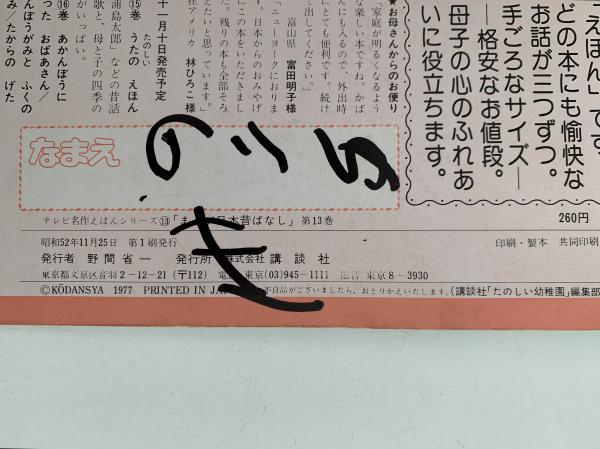 えほん」です。
どの本にも愉快な
お話が三つずつ。
手ごろなサイズ―
―格安なお値段。
母子の心のふれあ
いに役立ちます。
★お母さんからのお便り
「家庭が明るくなるよう
な楽しい本ですね。かば
んにも入るので、外出時
にとても便利です。続け
て出してください。」
富山県 富田明子様
「ニューヨークにおりま
す。日本からのおみやげ
にこの本をいただきまし
た。残りの本も全部そろ
えたいと思っています。」
在アメリカ 林ひろこ様
十一月十日発売予定
⑮巻 うたの えほん
たのしい
浦島太郎」などの昔話
歌と、母と子の四季の
がいっぱい。
⑯巻 あかんぼうに
った おばあさん/
んぼうがみと ふくの
み/たからの げた
なまえ
テレビ名作えほんシリーズ⑬「ま
日本昔ばなし」第13巻
260円
昭和52年11月25日 第1刷発行
印刷・製本 共同印刷
発行者 野間省一 発行所 株式会社 講談社
東京都文京区音羽2-12-21(〒112) 電話 東京(03)945-1111 振替 東京8-3930
©KŌDANSYA 1977 PRINTED IN JA
不良品がございましたら、おとりかえいたします。(講談社「たのしい幼稚園」編集部